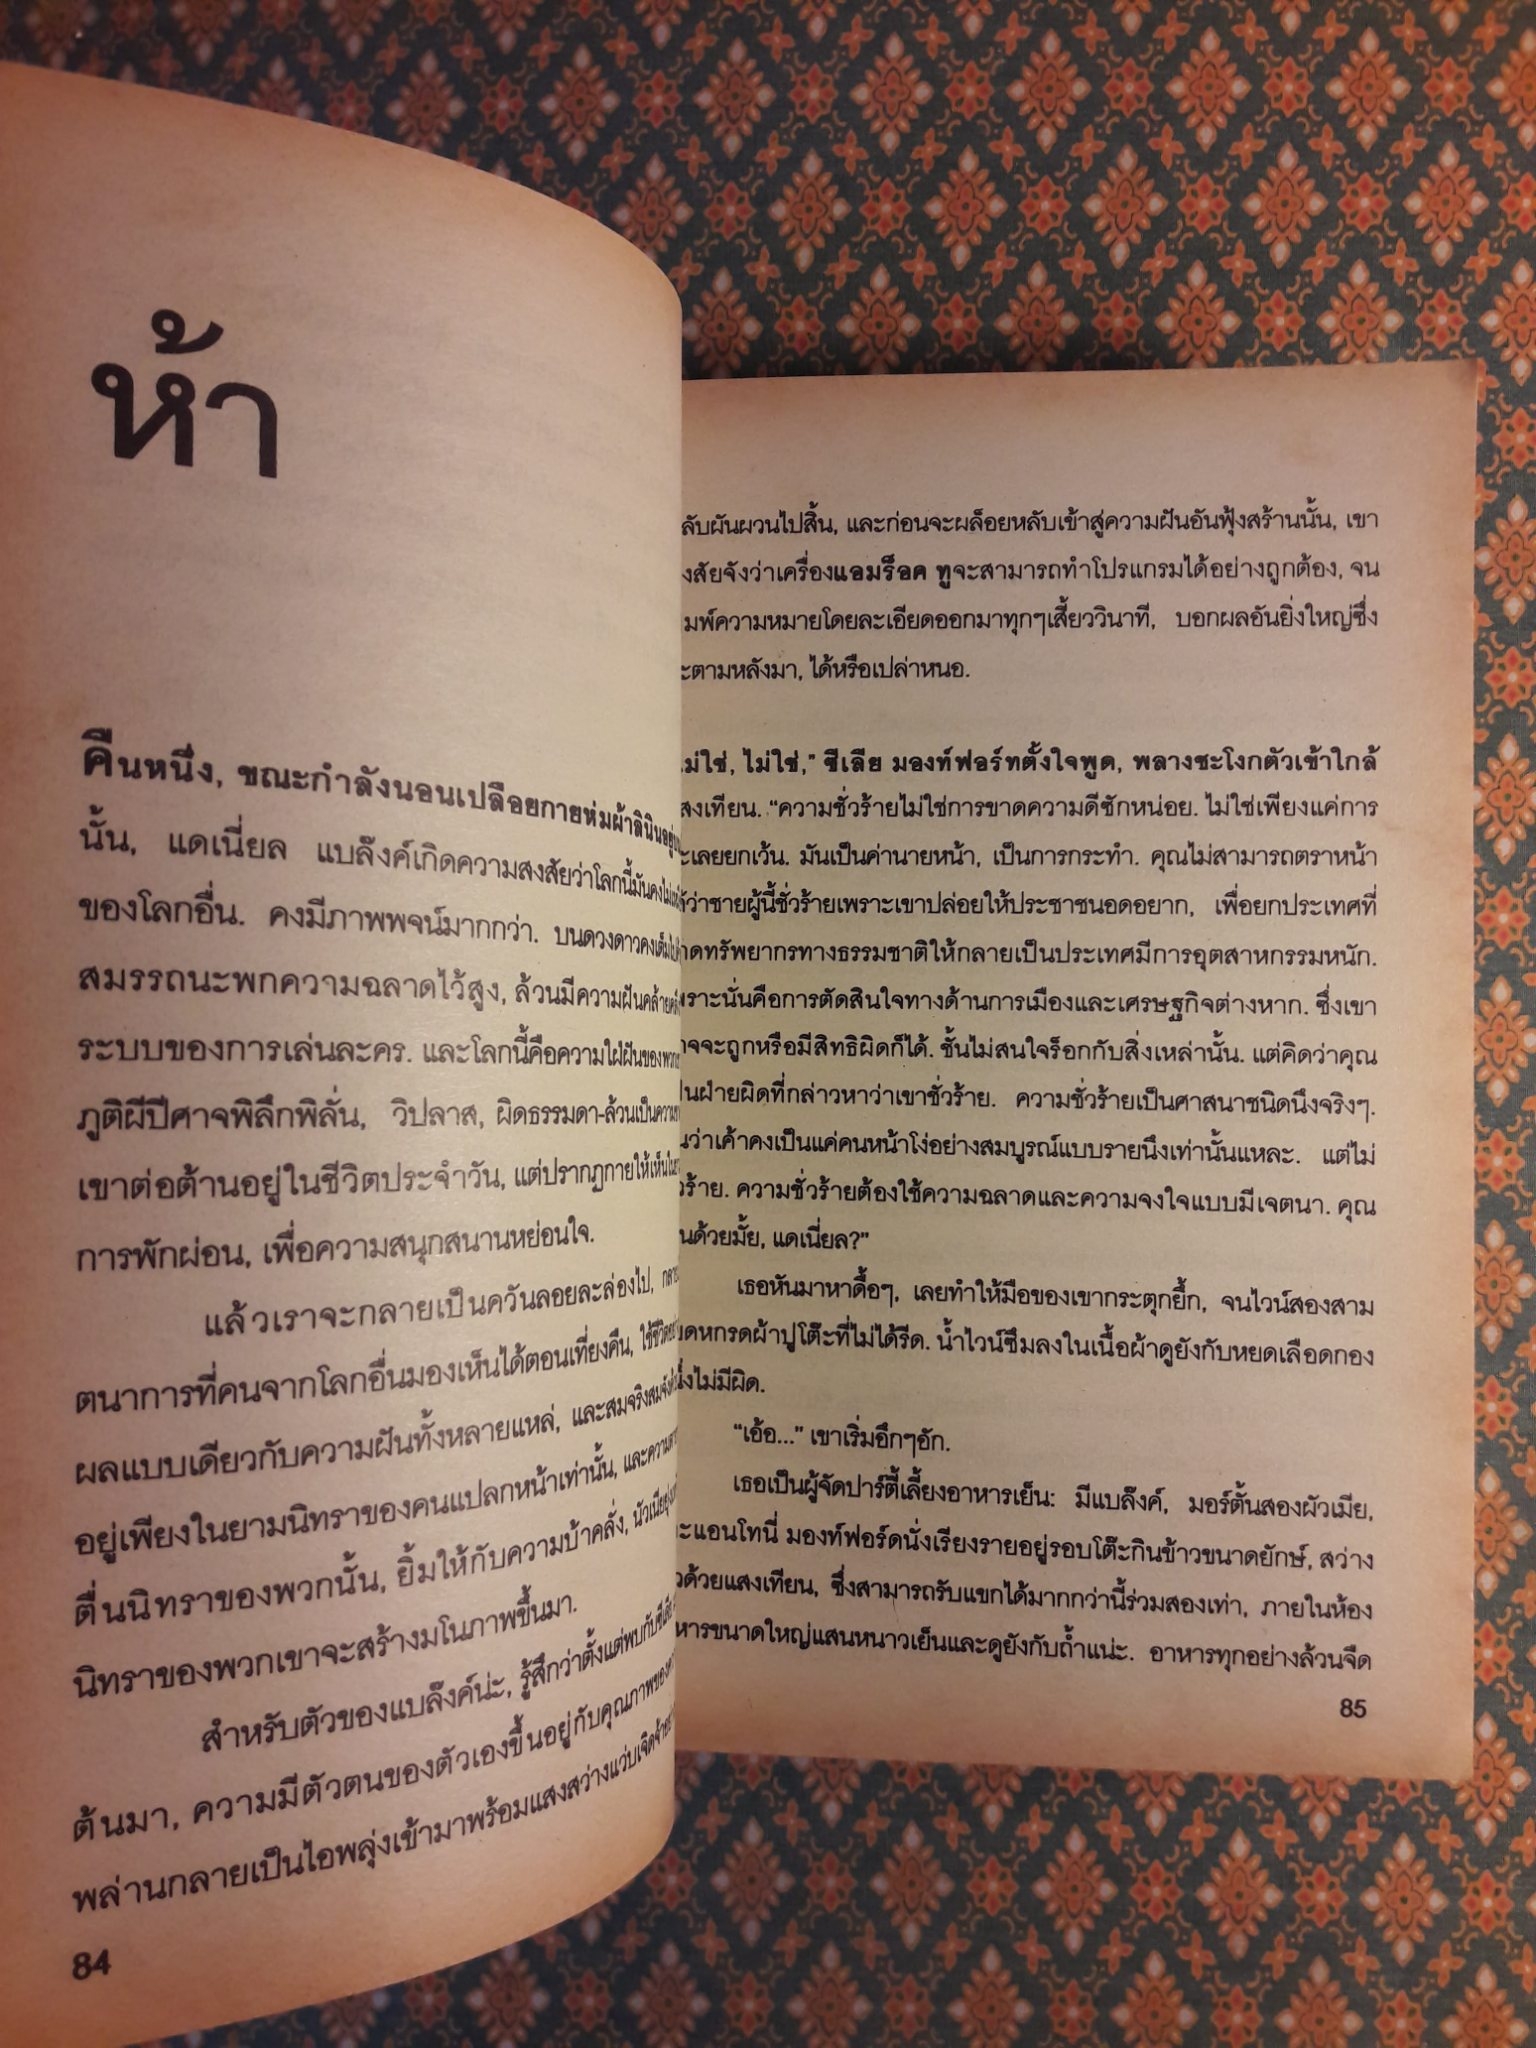 ห้า
คืนหนึ่ง, ขณะกำลังนอนเปลือยกายห่มผ้าลินินอยู่
นั้น, แดเนี่ยล แบล๊งค์เกิดความสงสัยว่าโลกนี้มันคง
ของโลกอื่น. คงมีภาพพจน์มากกว่า. บนดวงดาวคงเต็มไป
สมรรถนะพกความฉลาดไว้สูง, ล้วนมีความฝันคล้าย
ระบบของการเล่นละคร. และโลกนี้คือความใฝ่ฝันของพวก
ภูติผีปีศาจพิลึกพิลั่น, วิปลาส, ผิดธรรมดา-ล้วนเป็นความ
เขาต่อต้านอยู่ในชีวิตประจำวัน, แต่ปรากฏกายให้เห็นใน
การพักผ่อน, เพื่อความสนุกสนานหย่อนใจ.
แล้วเราจะกลายเป็นควันลอยละล่องไป,
ตนาการที่คนจากโลกอื่นมองเห็นได้ตอนเที่ยงคืน, ใช้ชีวิต
ผลแบบเดียวกับความฝันทั้งหลายแหล่, และสมจริงสมจัง
อยู่เพียงในยามนิทราของคนแปลกหน้าเท่านั้น, และความ
ตื่นนิทราของพวกนั้น, ยิ้มให้กับความบ้าคลั่ง,
นิทราของพวกเขาจะสร้างมโนภาพขึ้นมา.
สำหรับตัวของแบล๊งค์น่ะ, รู้สึกว่าตั้งแต่พบกับ
ต้นมา, ความมีตัวตนของตัวเองขึ้นอยู่กับคุณภาพของ
พล่านกลายเป็นไอพลุ่งเข้ามาพร้อมแสงสว่างแว่บเจิดจ้า
84
ลับผันผวนไปสิ้น, และก่อนจะผล็อยหลับเข้าสู่ความฝันอันฟุ้งสร้านนั้น, เขา
งสัยจังว่าเครื่องแอมร็อค ทูจะสามารถทำโปรแกรมได้อย่างถูกต้อง, จน
มพ์ความหมายโดยละเอียดออกมาทุกๆเสี้ยววินาที, บอกผลอันยิ่งใหญ่ซึ่ง
ะตามหลังมา, ได้หรือเปล่าหนอ.
ไม่ใช่, ไม่ใช่," ซีเลีย มองท์ฟอร์ทตั้งใจพูด, พลางชะโงกตัวเข้าใกล้
สงเทียน. "ความชั่วร้ายไม่ใช่การขาดความดีซักหน่อย. ไม่ใช่เพียงแค่การ
ะเลยยกเว้น. มันเป็นค่านายหน้า, เป็นการกระทำ. คุณไม่สามารถตราหน้า
ด้ว่าชายผู้นี้ชั่วร้ายเพราะเขาปล่อยให้ประชาชนอดอยาก, เพื่อยกประเทศที่
าดทรัพยากรทางธรรมชาติให้กลายเป็นประเทศมีการอุตสาหกรรมหนัก.
พราะนั่นคือการตัดสินใจทางด้านการเมืองและเศรษฐกิจต่างหาก. ซึ่งเขา
าจจะถูกหรือมีสิทธิผิดก็ได้. ชั้นไม่สนใจร็อกกับสิ่งเหล่านั้น. แต่คิดว่าคุณ
ป็นฝ่ายผิดที่กล่าวหาว่าเขาชั่วร้าย. ความชั่วร้ายเป็นศาสนาชนิดนึงจริงๆ.
นว่าเค้าคงเป็นแค่คนหน้าโง่อย่างสมบูรณ์แบบรายนึงเท่านั้นแหละ. แต่ไม่
วร้าย. ความชั่วร้ายต้องใช้ความฉลาดและความจงใจแบบมีเจตนา. คุณ
นด้วยมั้ย, แดเนี่ยล?"
เธอหันมาหาดื้อๆ, เลยทำให้มือของเขากระตุกยึ้ก, จนไวน์สองสาม
ยดหกรดผ้าปูโต๊ะที่ไม่ได้รีด. น้ำไวน์ซึมลงในเนื้อผ้าดูยังกับหยดเลือดกอง
นึ่งไม่มีผิด.
"เอ้อ..." เขาเริ่มอึกๆอัก.
เธอเป็นผู้จัดปาร์ตี้เลี้ยงอาหารเย็น: มีแบล๊งค์, มอร์ตั้นสองผัวเมีย,
ะแอนโทนี่ มองท์ฟอร์ดนั่งเรียงรายอยู่รอบโต๊ะกินข้าวขนาดยักษ์, สว่าง
วด้วยแสงเทียน, ซึ่งสามารถรับแขกได้มากกว่านี้ร่วมสองเท่า, ภายในห้อง
หารขนาดใหญ่แสนหนาวเย็นและดูยังกับถ้ำแน่ะ. อาหารทุกอย่างล้วนจืด
85